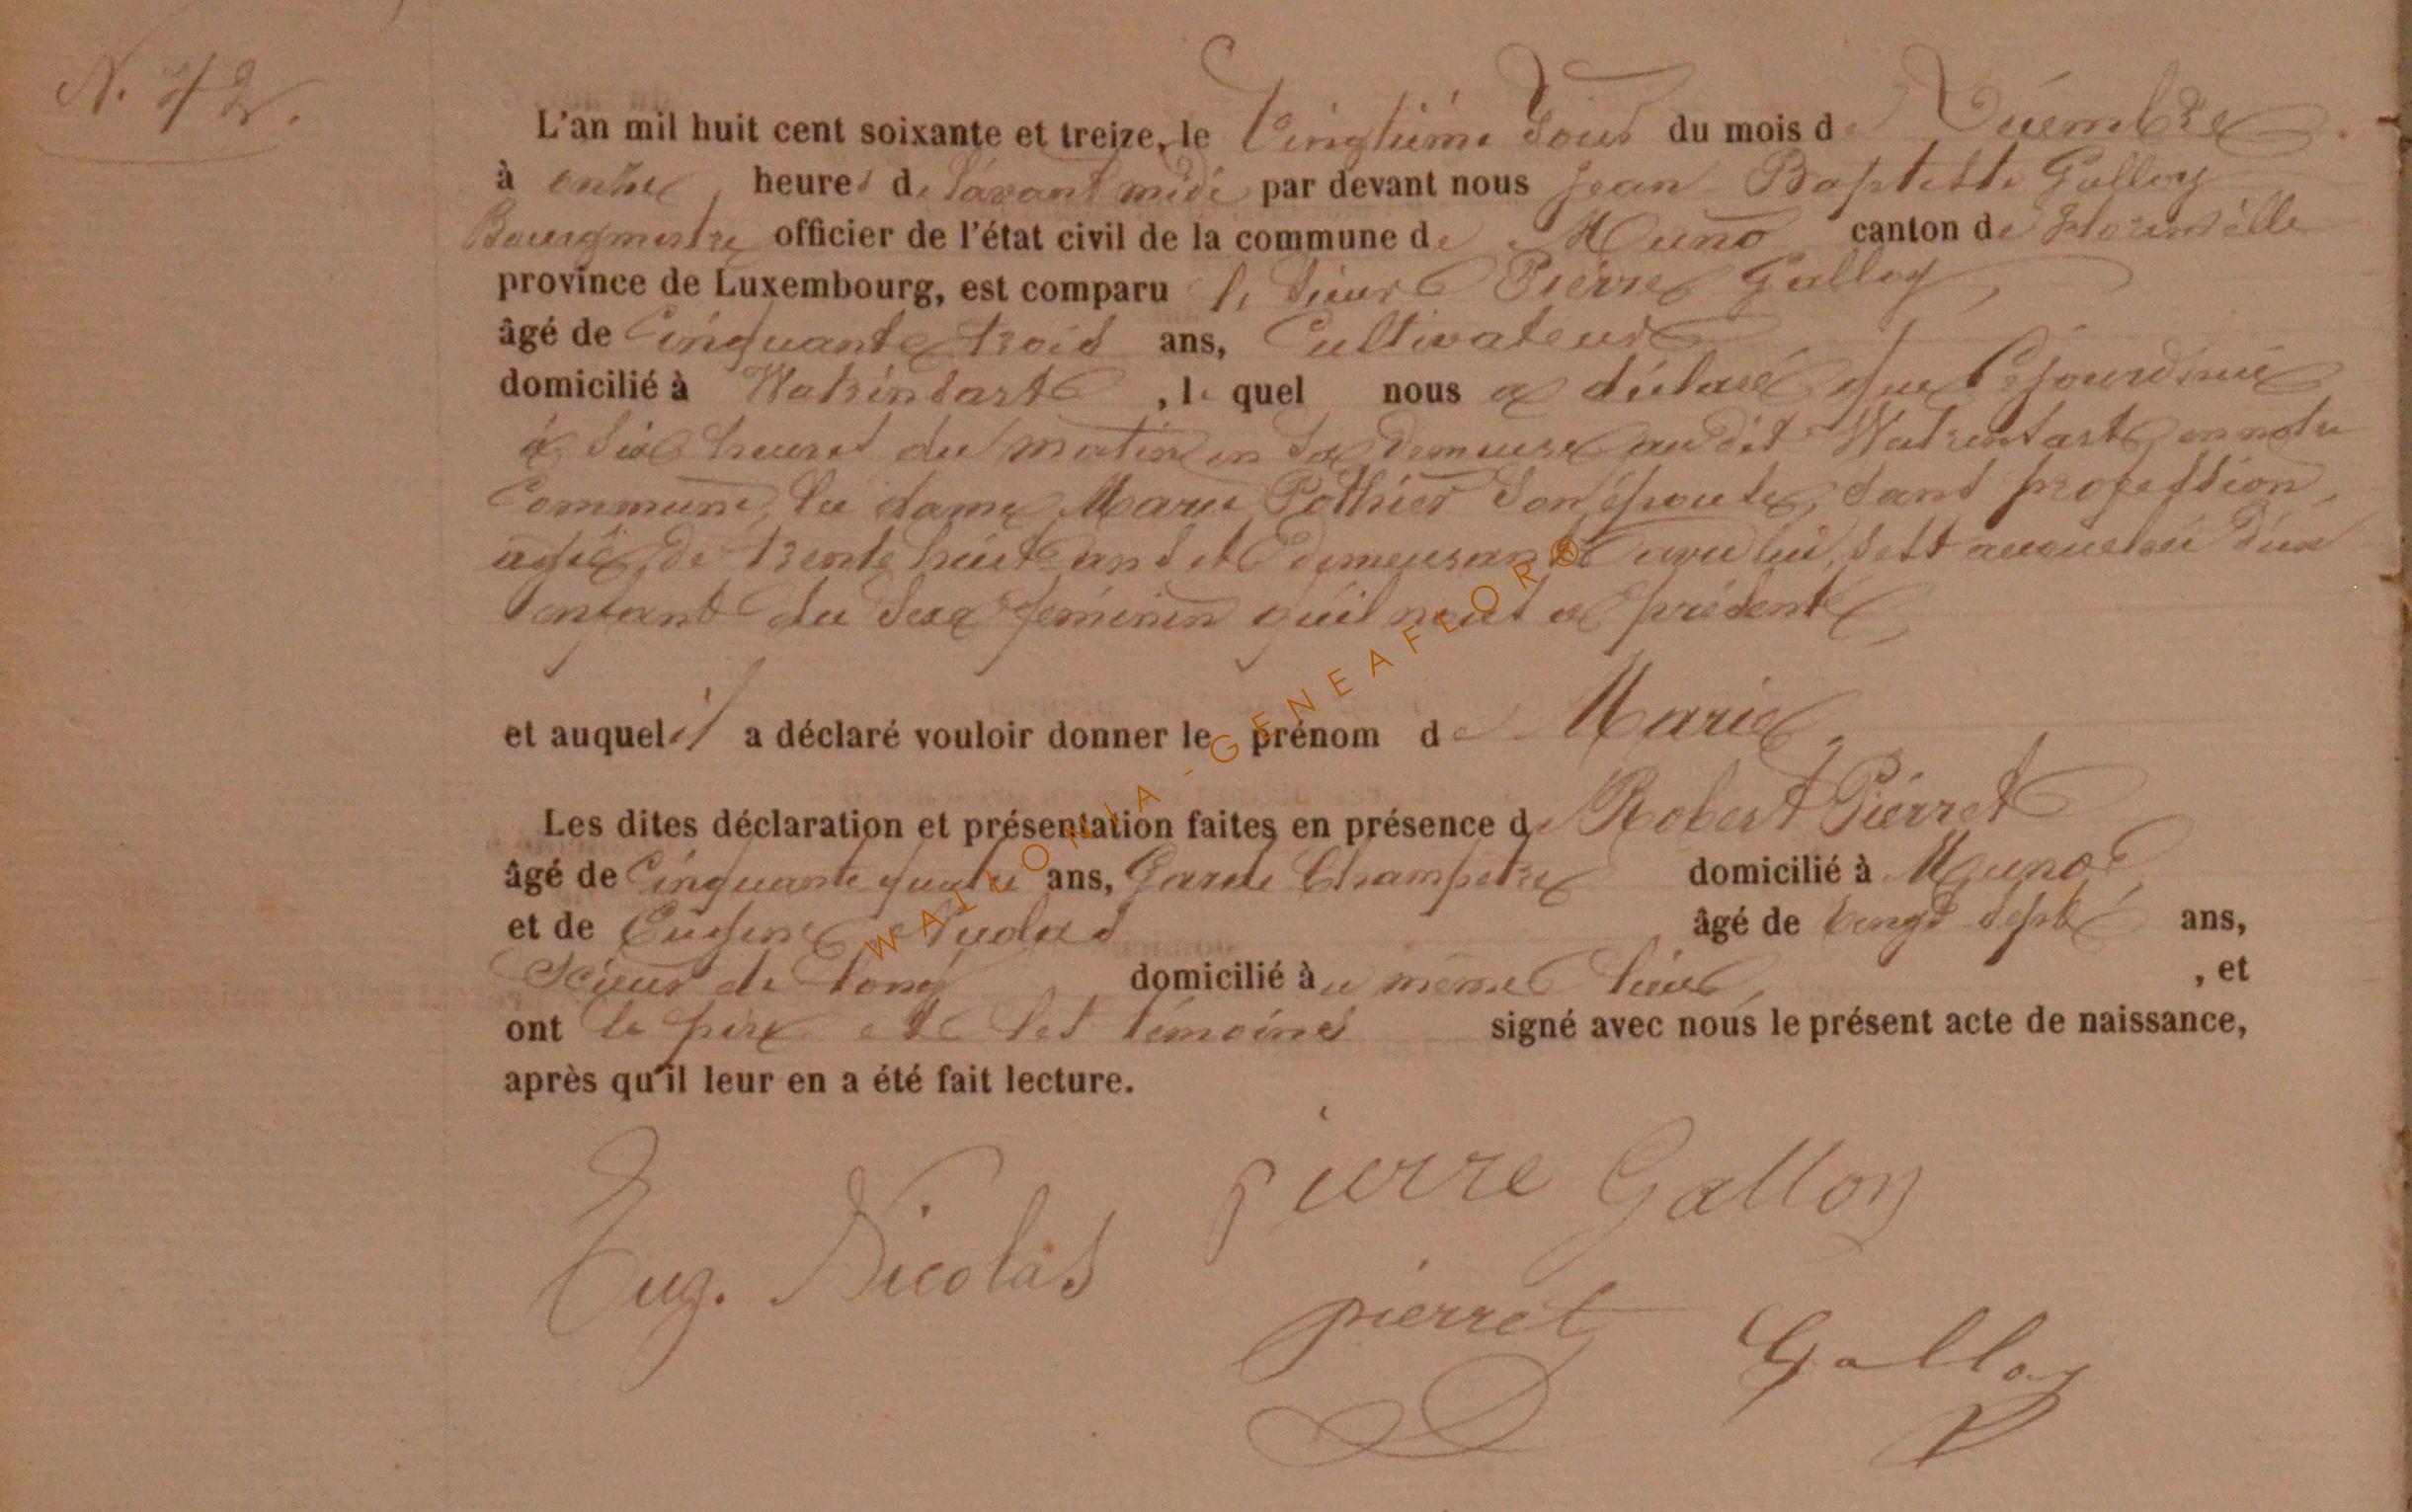 N. 42.
L'an mil huit cent soixante et treize, le Vingtième Jour du mois de Décembre
à onze heures de l'avant midi par devant nous Jean Baptiste Galloy
Bourgmestre officier de l'état civil de la commune de Muno canton de Florenville
province de Luxembourg, est comparu le sieur Pierre Galloy,
âgé de Cinquante trois ans, Cultivateur
domicilié à Watrinsart, lequel nous a déclaré que Cejourd'hui
à Six heures du matin en sa demeure audit Watrinsart en notre
Commune, la dame Marie Pothier son épouse, sans profession,
agée de trente huit ans et demeurant avec lui, s'est accouchée d'un
enfant du sexe féminin qu'il nous a présenté,
et auquel il a déclaré vouloir donner le prénom de Marie,
Les dites déclaration et présentation faites en présence de Robert Pierret
âgé de Cinquante quatre ans, Garde Champetre domicilié à Muno
et de Eugène Nicolas âgé de vingt sept ans,
Scieur de long domicilié au même lieu, et
ont le père et les témoins signé avec nous le présent acte de naissance,
après qu'il leur en a été fait lecture.
pierre Galloy
Eug. Nicolas
pierret Galloy
WALLONIA - GENEAFLOR®